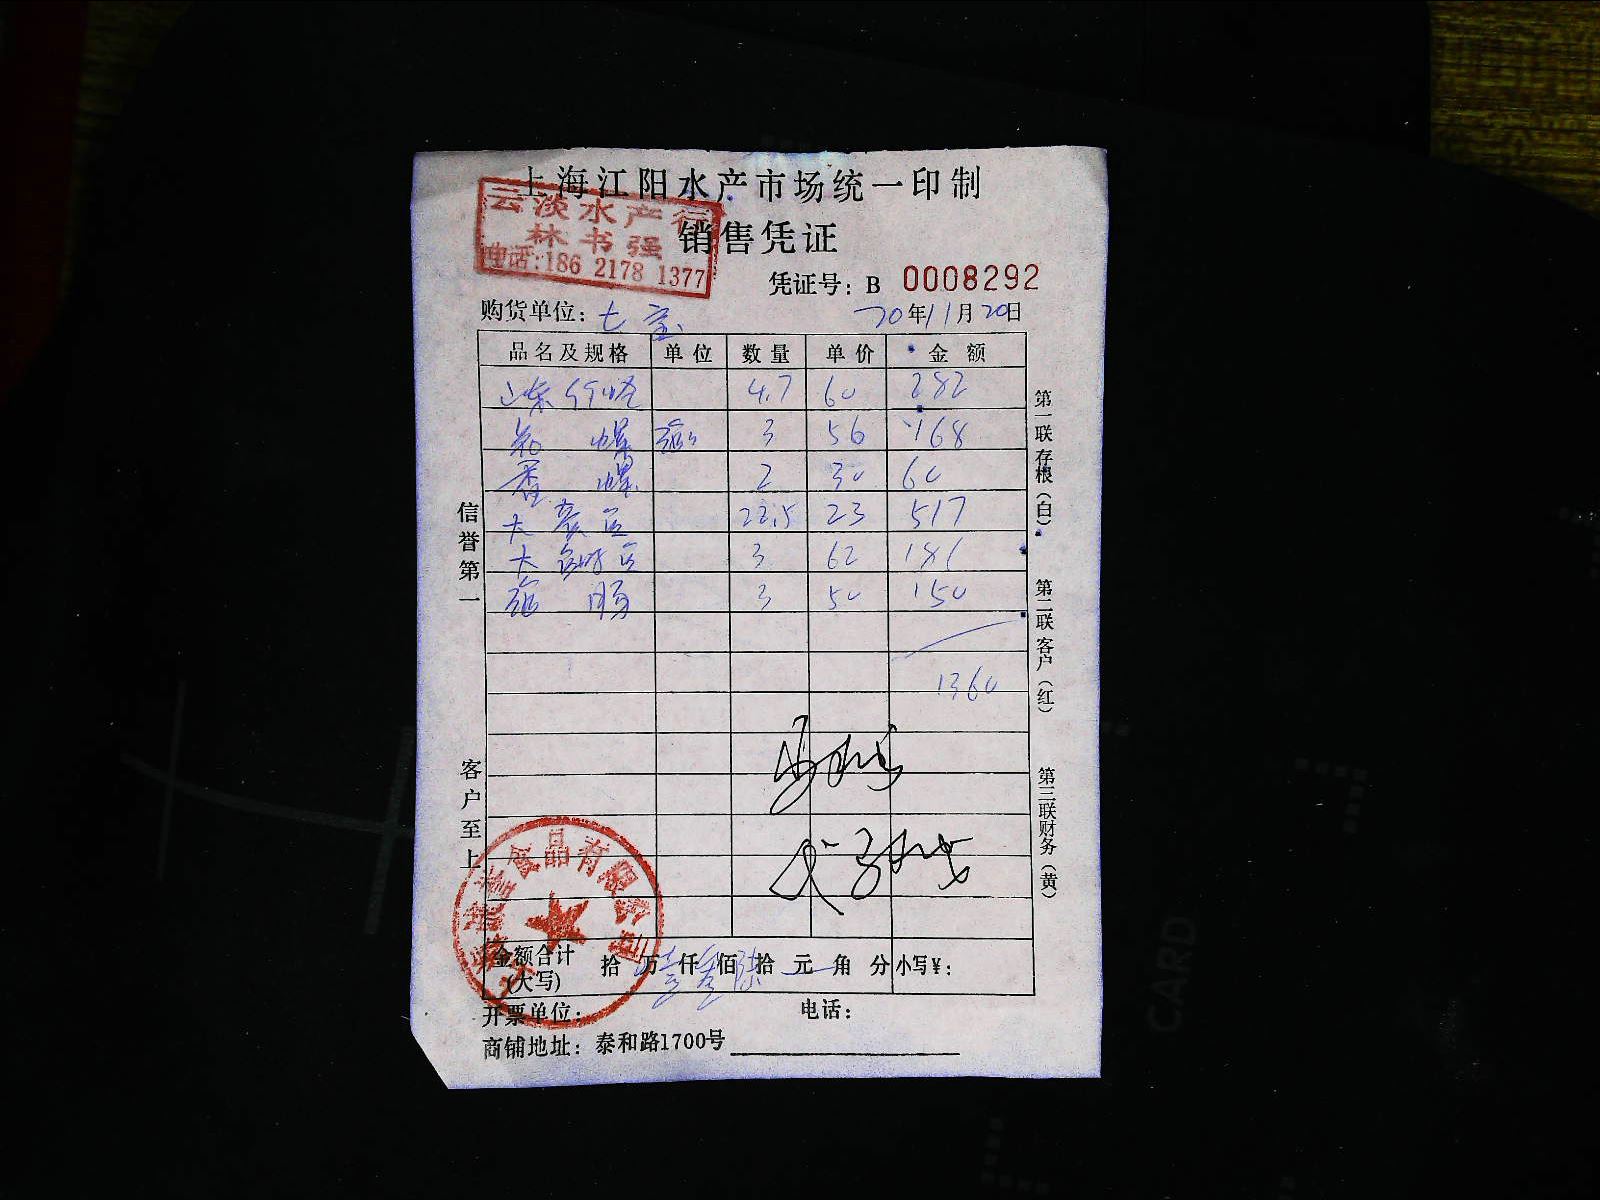 上海江阳水产市场统一印制
云淡水产行
林书强
电话:186 2178 1377
销售凭证
凭证号: B 0008292
购货单位: 七宝
20年11月20日
品名及规格 单位 数量 单价 金额
山东 4.7 60 282
螺 3 56 168
香螺 2 30 60
大 22.5 23 517
大 3 62 186
3 50 150
1360
信誉第一
客户至上
第一联存根(白)
第二联客户(红)
第三联财务(黄)
食品有限公司
金额合计(大写) 拾万仟佰拾元角分 小写¥:
开票单位: 电话:
商铺地址: 泰和路1700号